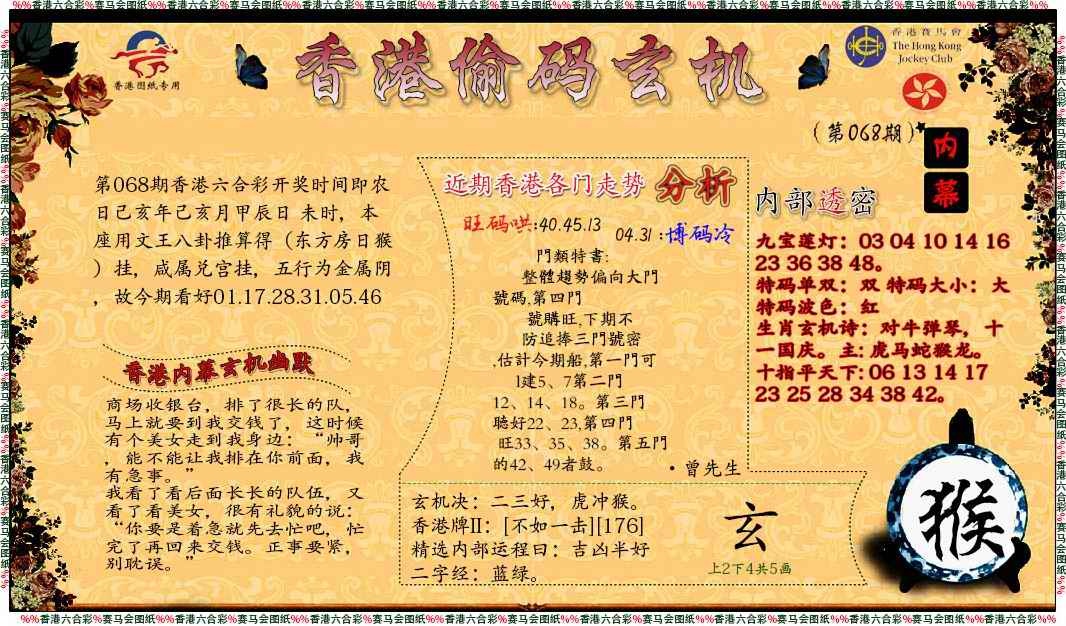 %%香港六合彩%赛马会图纸%%香港六合彩%赛马会图纸%%香港六合彩%赛马会图纸%%香港六合彩%赛马会图纸%%香港六合彩%赛马会图纸%%香港六合彩%赛马会图纸%%香港六合彩%%
香港图纸专用
香港偷码玄机
香港賽馬會
The Hong Kong
Jockey Club
(第068期)
内
幕
第068期香港六合彩开奖时间即农
日己亥年己亥月甲辰日 未时，本
座用文王八卦推算得（东方房日猴
）挂，咸属兑宫挂，五行为金属阴
，故今期看好01.17.28.31.05.46
香港内幕玄机幽默
商场收银台，排了很长的队，
马上就要到我交钱了，这时候
有个美女走到我身边：“帅哥
，能不能让我排在你前面，我
有急事。”
我看了看后面长长的队伍，又
看了看美女，很有礼貌的说：
“你要是着急就先去忙吧，忙
完了再回来交钱。正事要紧，
别耽误。”
近期香港各门走势 分析
旺码哄:40.45.13
04.31 :博码冷
門類特書:
整體趨勢偏向大門
號碼,第四門
號購旺,下期不
防追捧三門號密
,估計今期船,第一門可
1建5、7第二門
12、14、18。第三門
聽好22、23,第四門
旺33、35、38。第五門
的42、49者鼓。
·曾先生
内部透密
九宝莲灯：03 04 10 14 16
23 36 38 48。
特码单双：双 特码大小：大
特码波色：红
生肖玄机诗：对牛弹琴，十
一国庆。主: 虎马蛇猴龙。
十指平天下: 06 13 14 17
23 25 28 34 38 42。
玄机决：二三好，虎冲猴。
香港牌II：[不如一击][176]
精选内部运程曰：吉凶半好
二字经：蓝绿。
玄
上2下4共5画
猴
%%香港六合彩%赛马会图纸%%香港六合彩%赛马会图纸%%香港六合彩%赛马会图纸%%香港六合彩%赛马会图纸%%香港六合彩%赛马会图纸%%香港六合彩%赛马会图纸%%香港六合彩%%